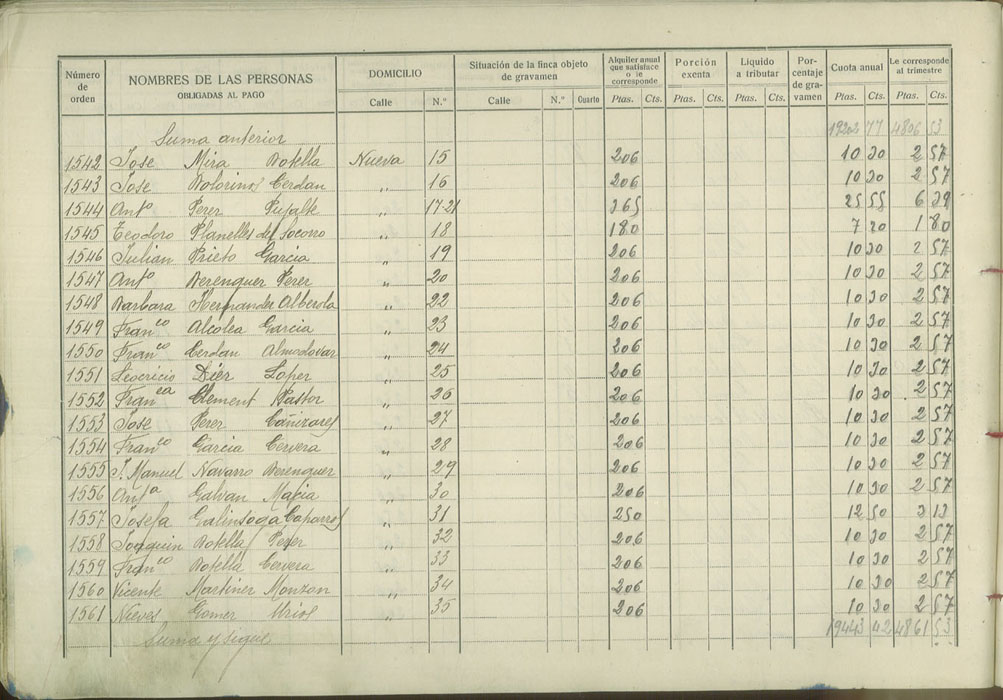 Número de orden NOMBRES DE LAS PERSONAS OBLIGADAS AL PAGO DOMICILIO Situación de la finca objeto de gravamen Alquiler anual que satisface o le corresponde Porción exenta Líquido a tributar Porcentaje de gravamen Cuota anual Le corresponde al trimestre
Calle N.º Calle N.º Cuarto Ptas. Cts. Ptas. Cts. Ptas. Cts. Ptas. Cts. Ptas. Cts.
Suma anterior 77 4806 53
1542 Jose Mira Botella Nueva 15 206 10 30 2 57
1543 Jose Bolorinos Cerdan " 16 206 10 30 2 57
1544 Antº Perez Pujalte " 17 21 365 25 55 6 39
1545 Teodoro Planelles del Socorro " 18 180 7 20 1 80
1546 Julian Prieto Garcia " 19 206 10 30 2 57
1547 Antº Berenguer Perez " 20 206 10 30 2 57
1548 Barbara Hernandez Alberola " 22 206 10 30 2 57
1549 Franco Alcolea Garcia " 23 206 10 30 2 57
1550 Franco Cerdan Almodovar " 24 206 10 30 2 57
1551 Leocricio Diez Lopez " 25 206 10 30 2 57
1552 Franca Clement Pastor " 26 206 10 30 2 57
1553 Jose Perez Cañizares " 27 206 10 30 2 57
1554 Franco Garcia Cervera " 28 206 10 30 2 57
1555 J. Manuel Navarro Berenguer " 29 206 10 30 2 57
1556 Antª Galvan Macia " 30 206 10 30 2 57
1557 Josefa Galinsoga Caparros " 31 250 12 50 3 13
1558 Joaquin Botella Perez " 32 206 10 30 2 57
1559 Franco Botella Cervera " 33 206 10 30 2 57
1560 Vicente Martinez Monzon " 34 206 10 30 2 57
1561 Nieves Gomez Urios " 35 206 10 30 2 57
Suma y sigue 19443 42 4861 53